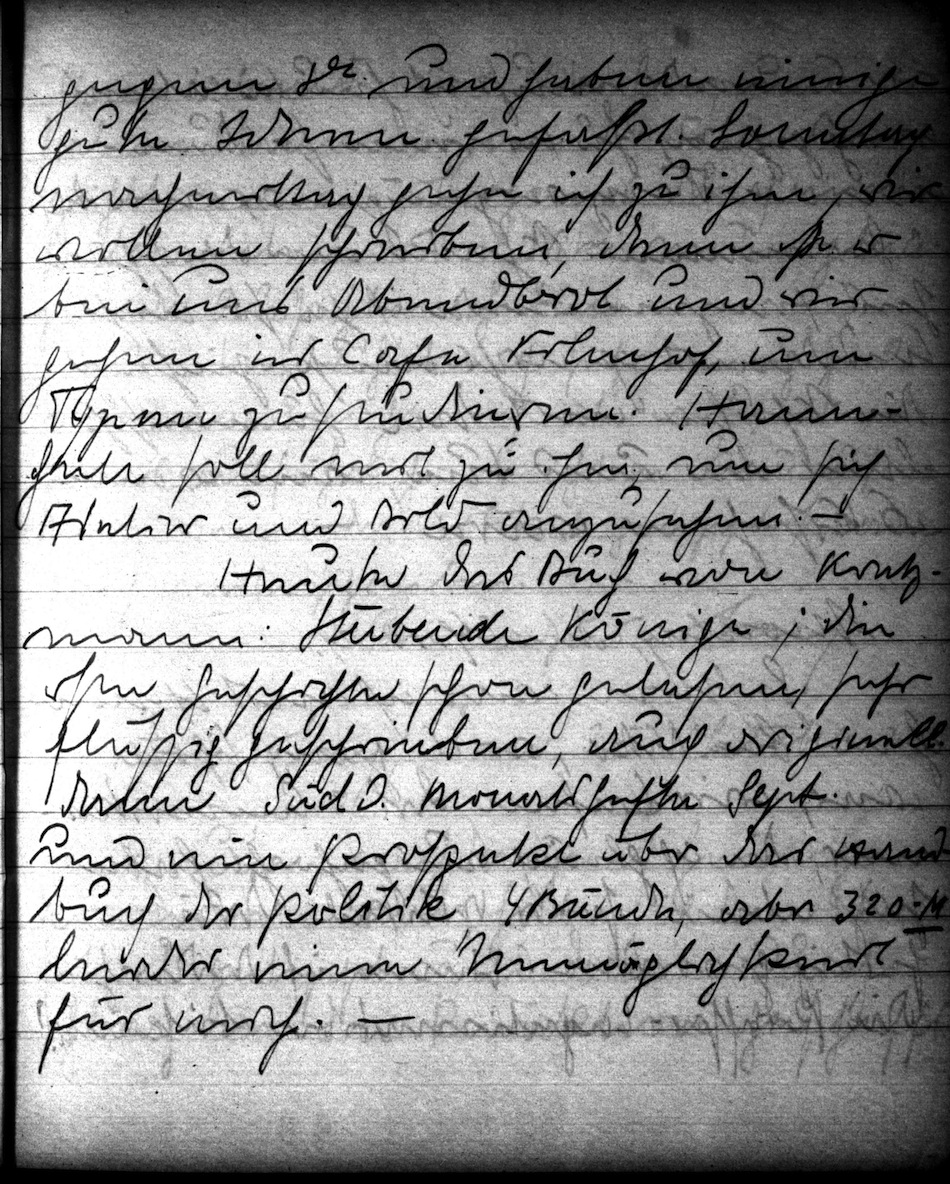 gegnen Dr. und haben einige
gute Ideen gefaßt. Sonntag
nachmittag gehe ich zu ihm, wir
wollen schreiben, dann ißt er
bei uns Abendbrot und wir
gehen ins Cafe Erlenhof, um
Typen zu studieren. Hann-
chen soll mit zu ihm, um sich
Atelier und Bild anzusehen. —
Heute das Buch von Kretz-
mann: Sterbende Könige; die
erste Geschichte schon gelesen, sehr
flüssig geschrieben, auch originell.
dann Südd. Monatshefte Sept.
und ein Prospekt über das Hand
buch der Politik 4 Bände, aber 320 M
leider eine Unmöglichkeit
für mich. —